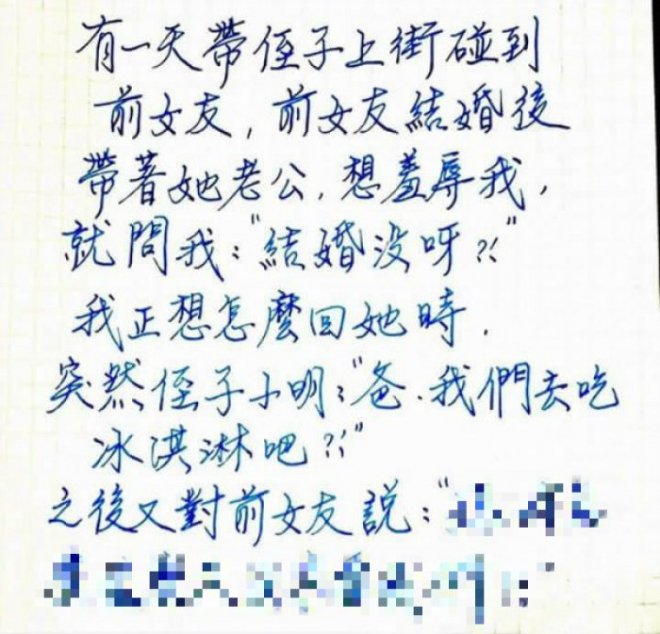 有一天帶侄子上街碰到
前女友,前女友結婚後
帶著她老公,想羞辱我,
就問我:"結婚没呀?!"
我正想怎麼回她時,
突然侄子小明:"爸、我們去吃
冰淇淋吧?!"
之後又對前女友說:"